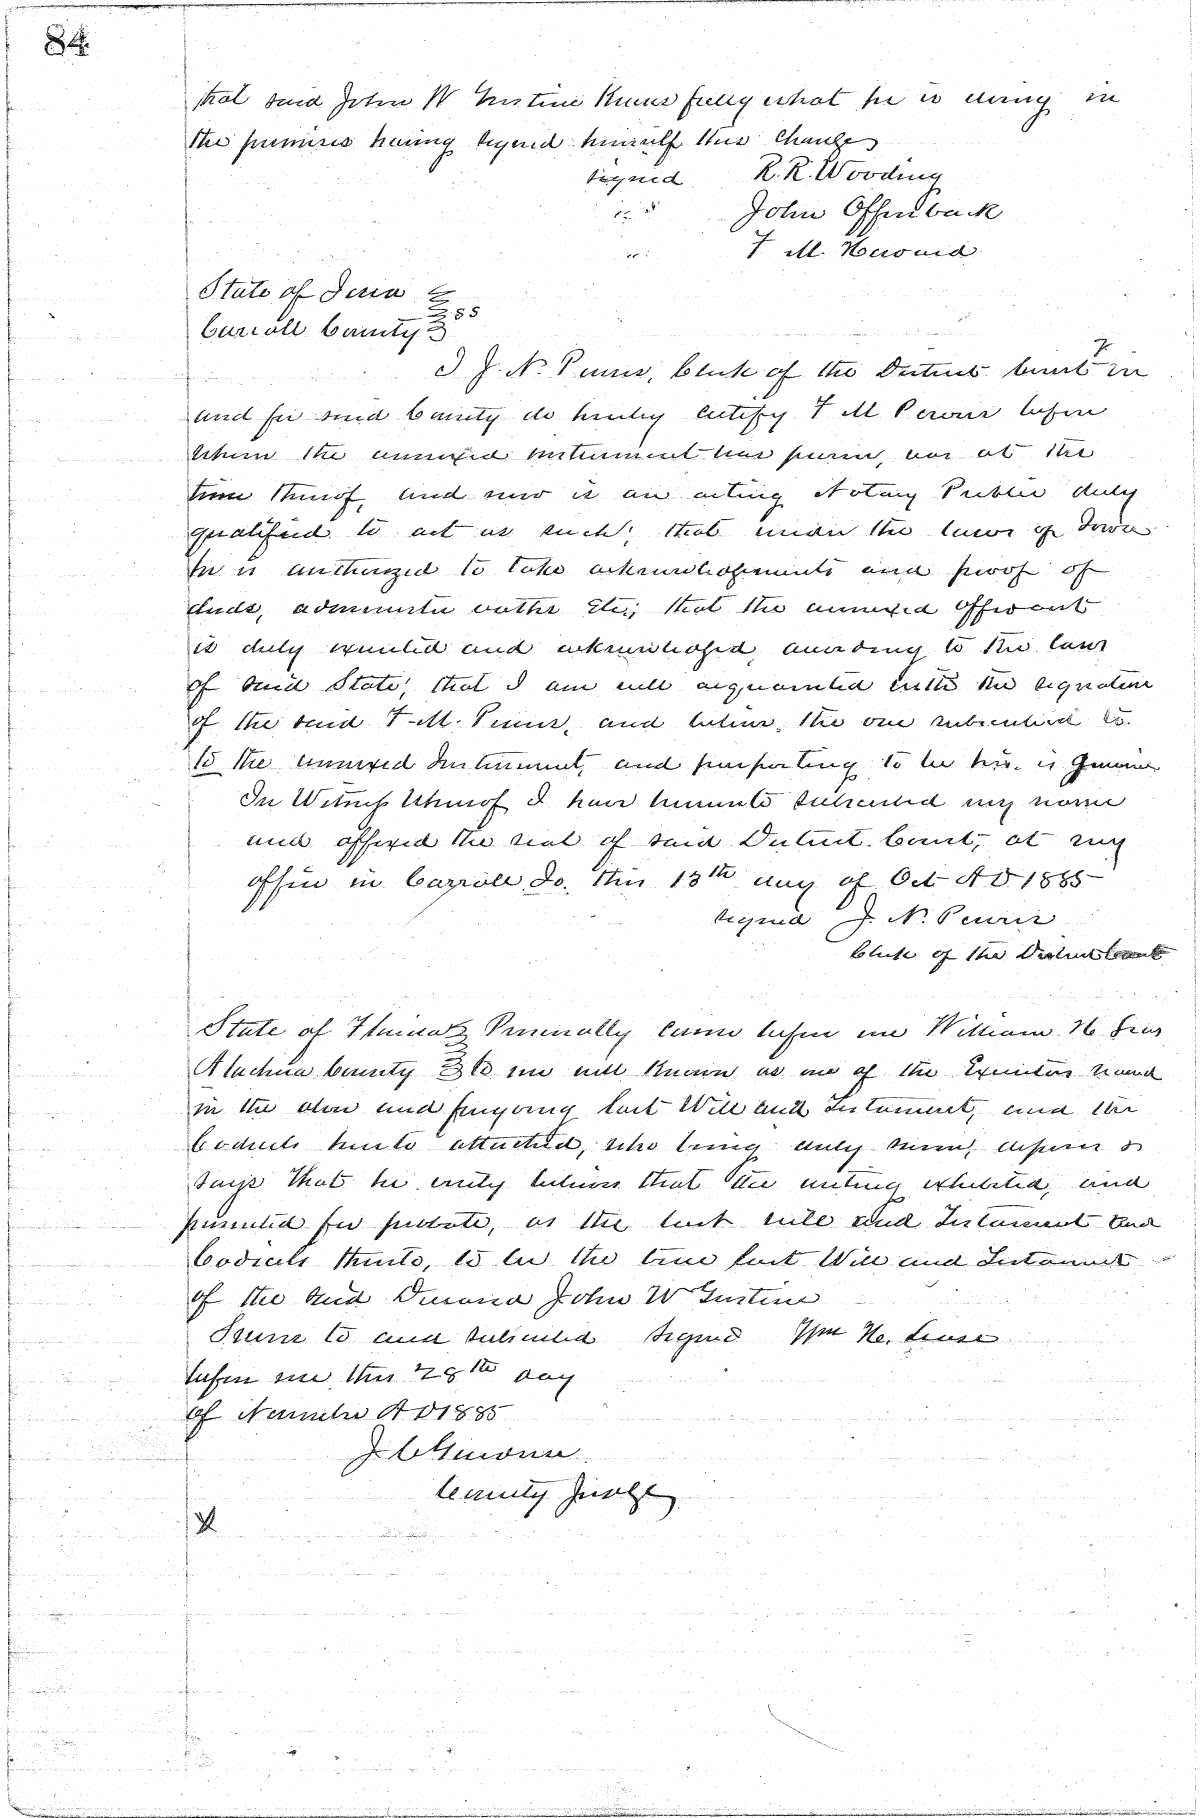 84.
that said John W Gustine Knows fully what he is doing in
the premises having signed himself this change
signed R. R. Wooding
" John Offenback
" T M. Howard
State of Iowa
Carroll County ss
I J. N. Powers, Clerk of the District Court in
and for said County do hereby certify T M Powers before
whom the annexed instrument has proven, was at the
time thereof, and now is an acting Notary Public duly
qualified to act as such; that under the laws of Iowa
he is authorized to take acknowledgements and proof of
deeds, administer oaths etc; that the annexed
is duly executed and acknowledged, according to the laws
of said State; that I am well acquainted with the signature
of the said T. M. Powers, and believe, the one subscribed to.
to the annexed Instrument, and purporting to be his. is Genuine
In Witness Whereof I have hereunto subscribed my name
and affixed the seal of said District Court, at my
office in Carroll Io. this 13th day of Oct A D 1885
signed J. N. Powers
Clerk of the District Court
State of Florida Personally came before me William H
Alachua County to me well Known as one of the Executors named
in the above and foregoing last Will and Testament, and the
Codicils hereto attached, who being duly sworn, deposes &
says that he verily believes that the writing exhibited, and
presented for probate, as the last will and Testament and
Codicils thereto, to be the true last Will and Testament
of the said Deceased John W Gustine
Sworn to and subscribed signed Wm H.
before me this 28th day
of November A D 1885
J. C.
County Judge